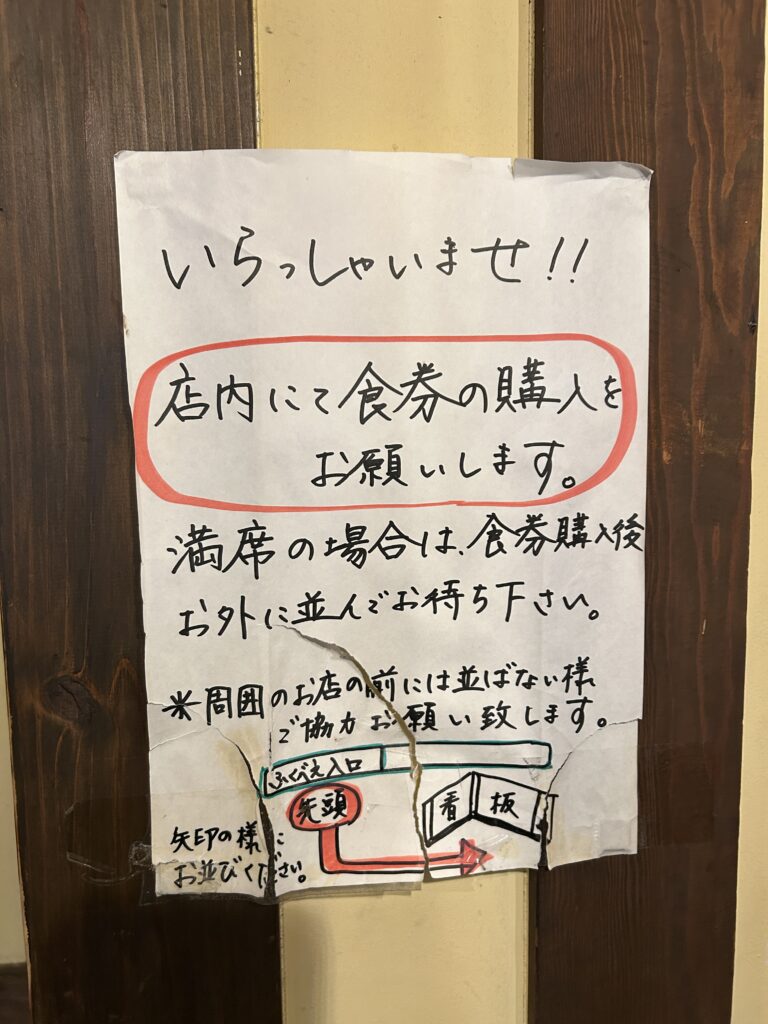 いらっしゃいませ!!
店内にて食券の購入を
お願いします。
満席の場合は、食券購入後
お外に並んでお待ち下さい。
※周囲のお店の前には並ばない様
ご協力お願い致します。
ふくべえ入口
先頭
看板
矢印の様に
お並びください。